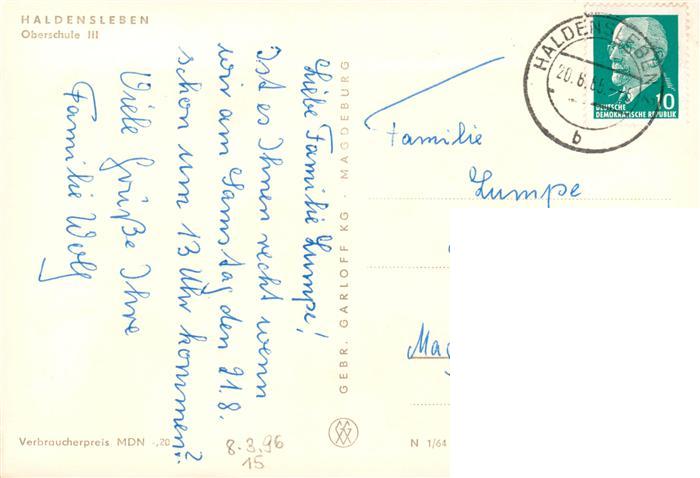 HALDENSLEBEN
Oberschule III
Liebe Familie Lumpe!
Ist es Ihnen recht wenn
wir am Samstag den 21.8.
schon um 13 Uhr kommen?
Viele Grüße Ihre
Familie Wolf
Verbraucherpreis MDN -,20
8.3.96
15
GEBR. GARLOFF KG · MAGDEBURG
N 1/64
HALDENSLEBEN
b
10
DEUTSCHE
DEMOKRATISCHE REPUBLIK
Familie
Lumpe
Mag